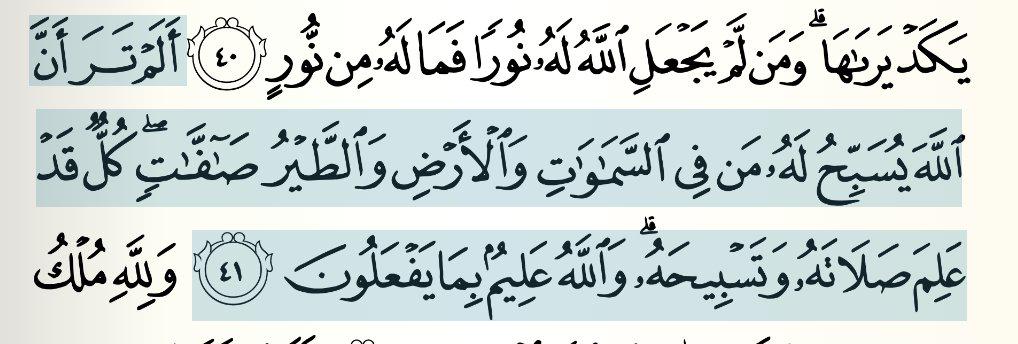 يَكَدْ يَرَىٰهَا ۗ وَمَن لَّمْ يَجْعَلِ ٱللَّهُ لَهُۥ نُورًا فَمَا لَهُۥ مِن نُّورٍ ٤٠ أَلَمْ تَرَ أَنَّ
ٱللَّهَ يُسَبِّحُ لَهُۥ مَن فِى ٱلسَّمَـٰوَٰتِ وَٱلْأَرْضِ وَٱلطَّيْرُ صَـٰٓفَّـٰتٍ ۖ كُلٌّ قَدْ
عَلِمَ صَلَاتَهُۥ وَتَسْبِيحَهُۥ ۗ وَٱللَّهُ عَلِيمٌۢ بِمَا يَفْعَلُونَ ٤١ وَلِلَّهِ مُلْكُ